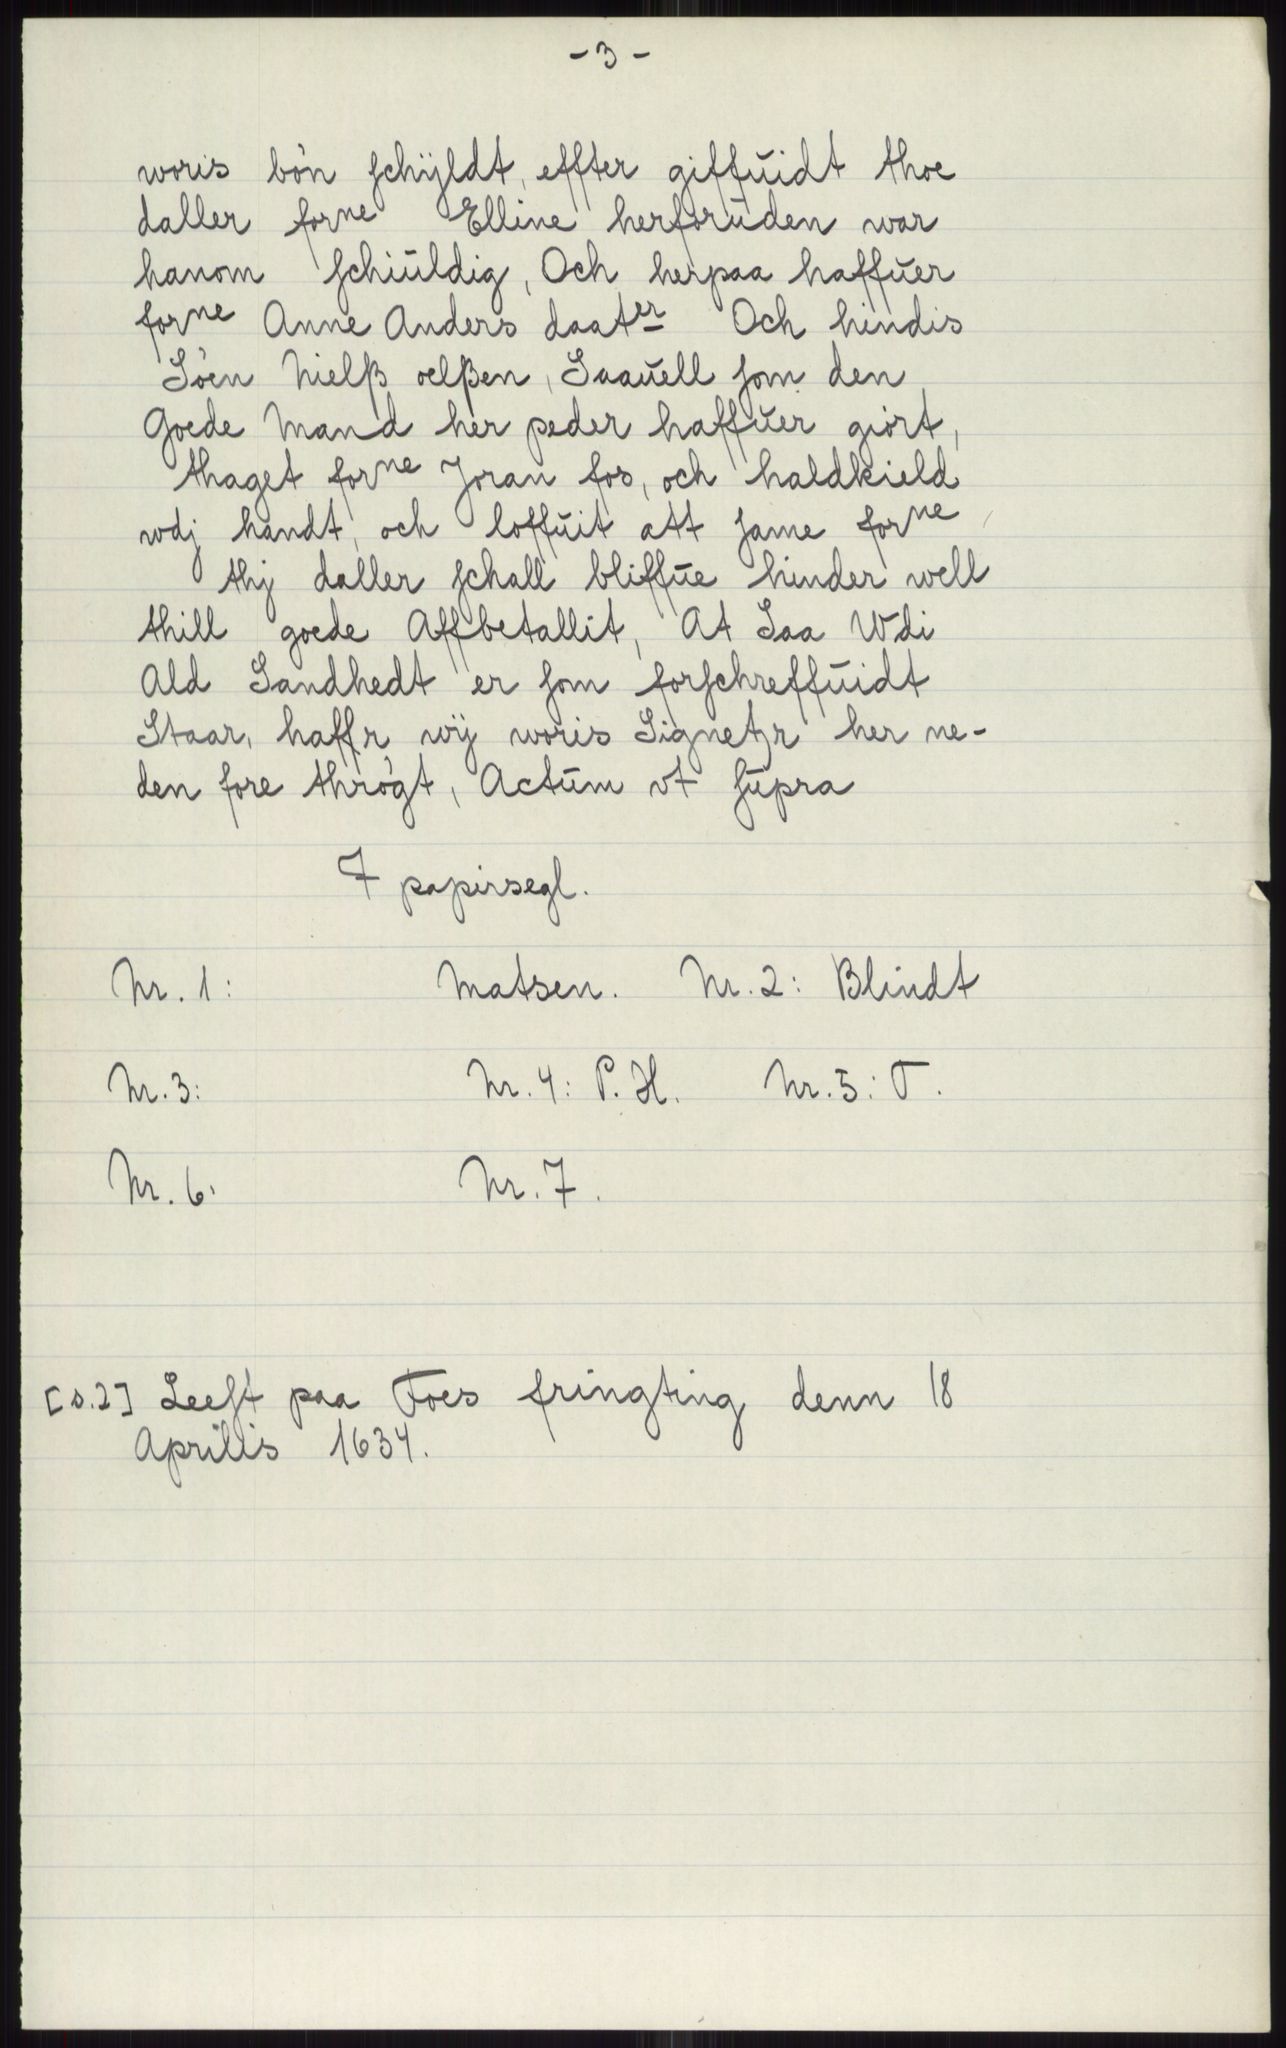 - 3 -
woris bön schÿldt, effter giffuidt thoe
daller forne Elline herforuden war
hanom schiuldig, Och herpaa haffuer
forne Anne Anders daater Och hindis
Söen Nielß oelßen, Saauell som den
Goede Mand her peder haffuer giört,
thaget forne Joran fos, och haldkield
wdj handt, och loffuit att same forne
thj daller schall bliffue hinder well
thill goede Affbetallit, At Saa Wdi
Ald Sandhedt er som forschreffuidt
Staar, haffr wÿ woris Signetzr her ne-
den fore thrögt, Actum vt supra
7 papirsegl.
Nr. 1: Matsen. Nr. 2: Blindt
Nr. 3: Nr. 4: P. H. Nr. 5: T.
Nr. 6. Nr. 7.
[s. 2] Leest paa Foes fringting denn 18
Aprilis 1634.